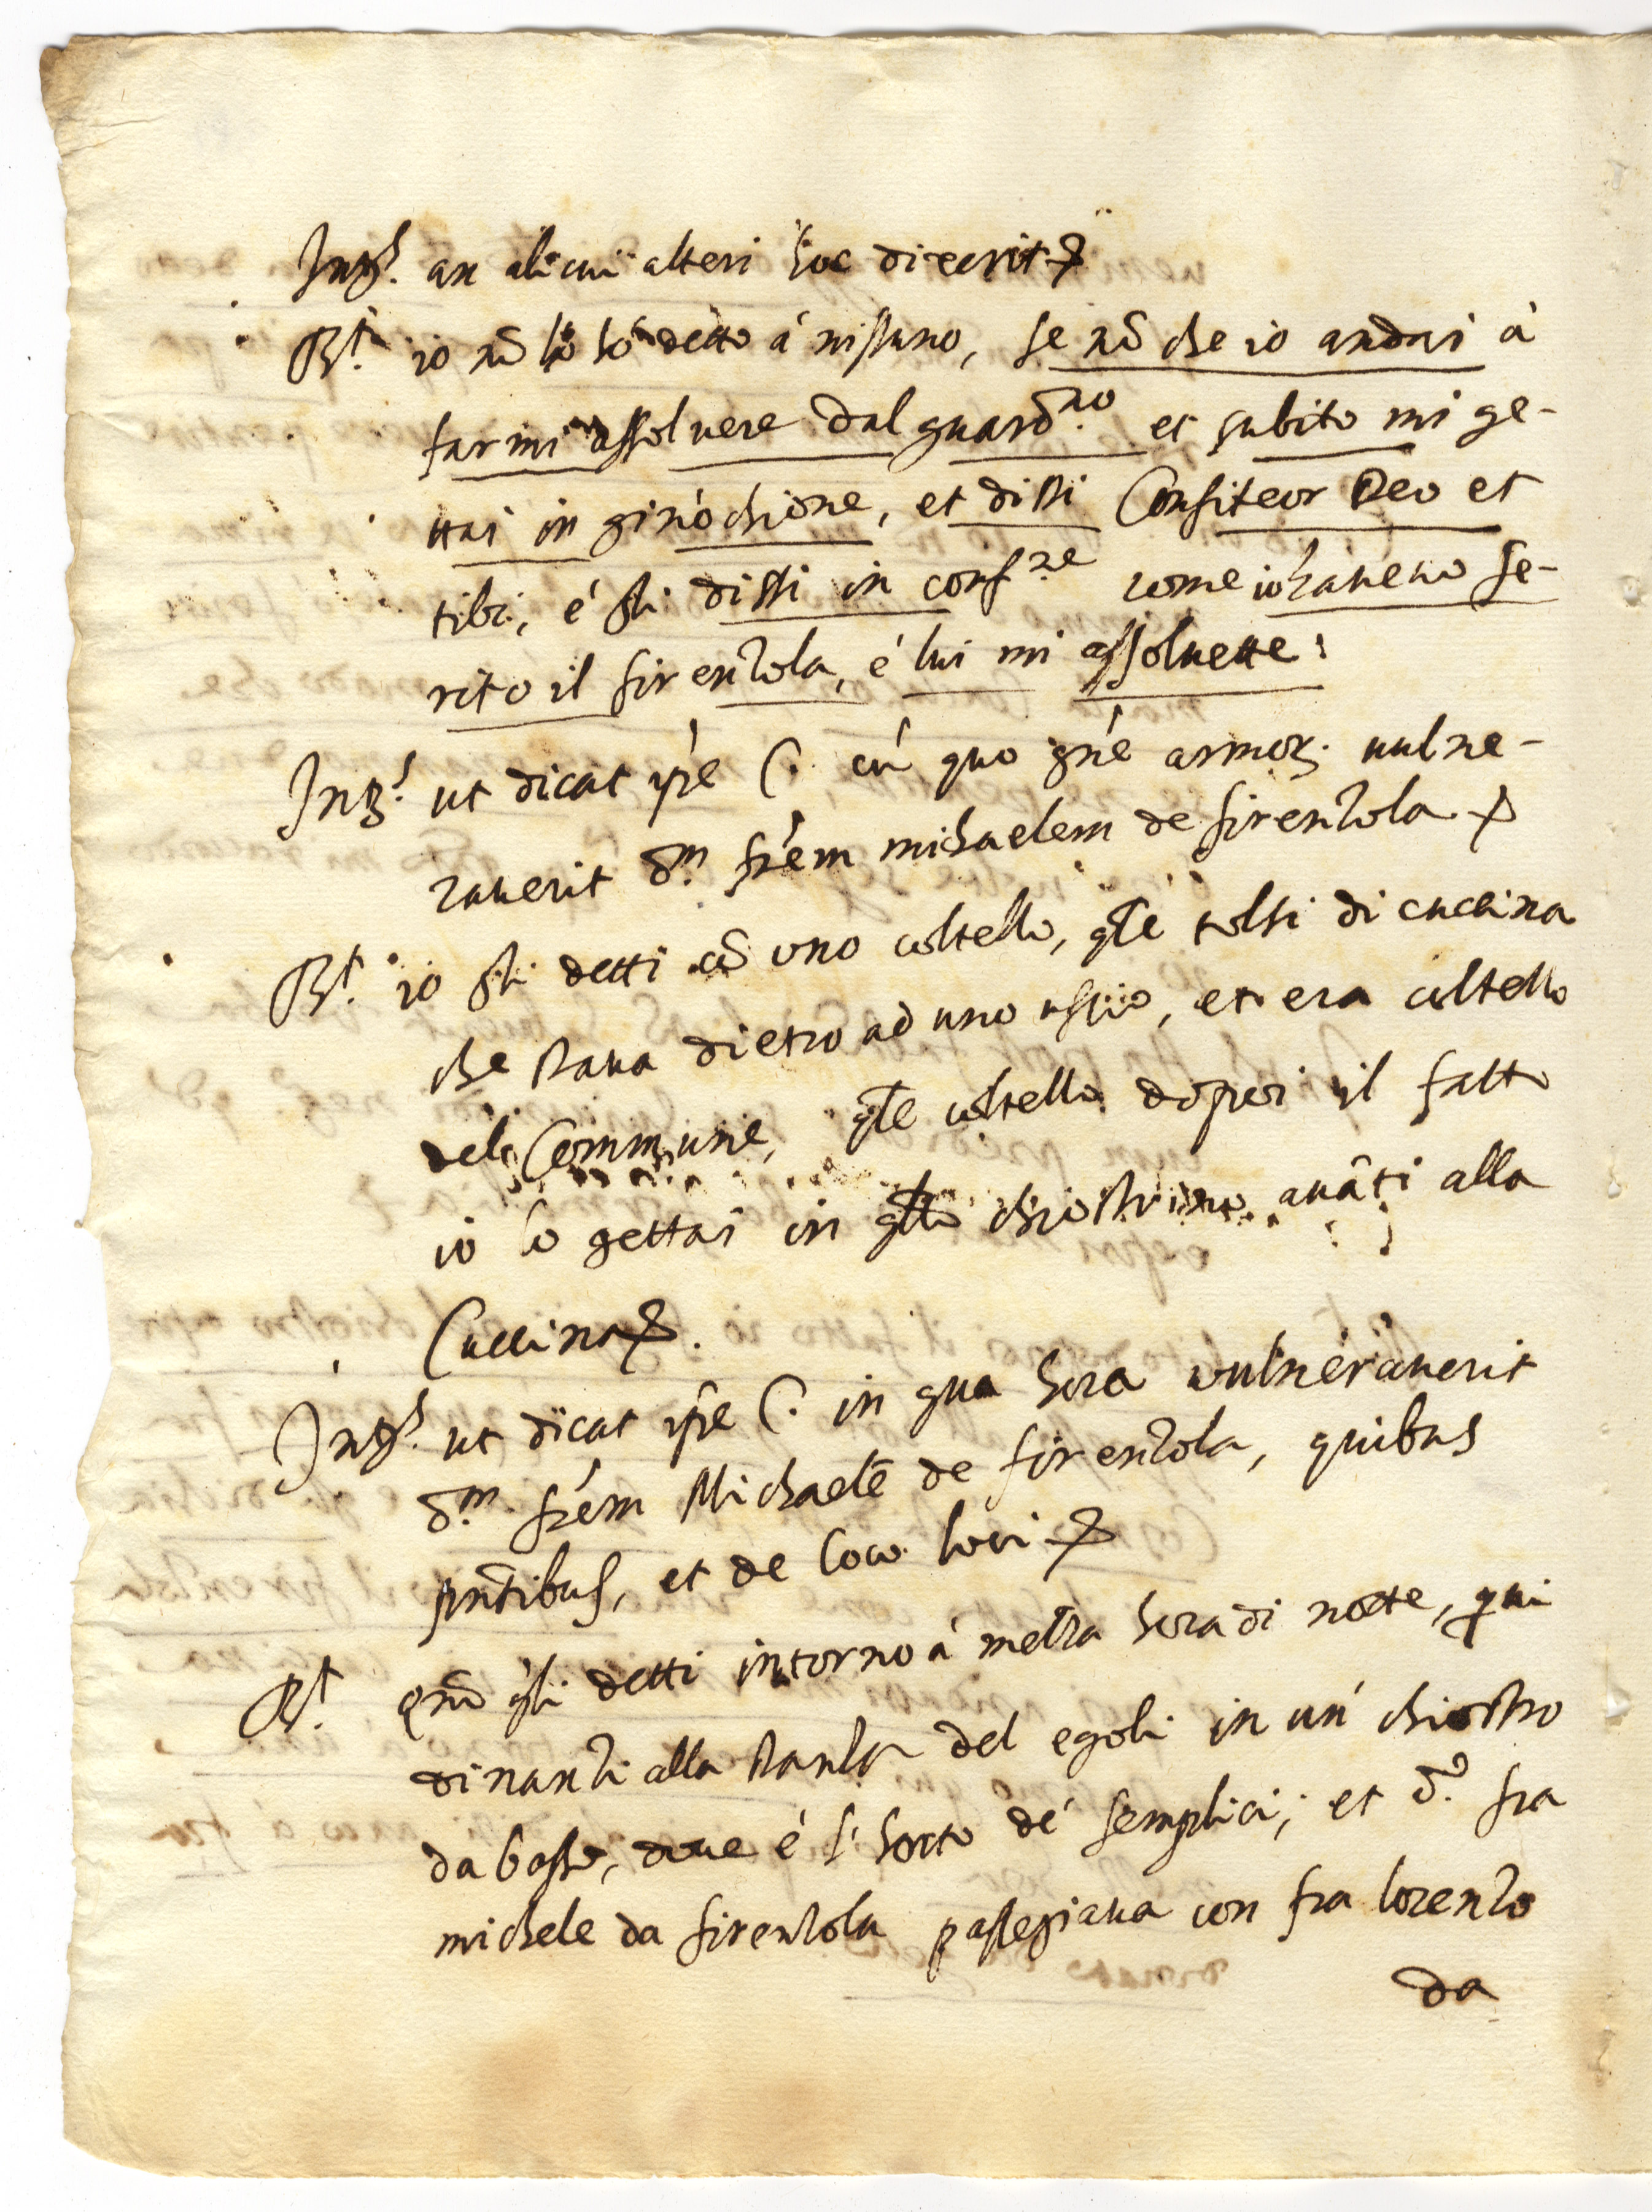 Int.s an alicui alteri hoc dixerit &
R.t io nõ lo hò detto à nissuno, se nõ che io andai à
farmi assoluere dal guard.no et subito mi ge-
ttai in ginochione, et dissi Confiteor Deo et
tibi, é gli dissi in conf.ne come io haueuo fe-
rito il firenzola, é lui mi assoluette:
Int.s ut dicat ip̃e C. cũ quo gñe armor. uulne-
rauerit d.m fr̃em michaelem de firenzola &
R.t io gli detti cõ uno coltello, q̃le tolsi di cucina
che staua dietro ad uno uscio, et era coltello
del Commune, q̃le coltello dopoi il fatto
io lo gettai in q̃llo chiostrino auãti alla
Cuccina &.
Int.s ut dicat ip̃e C. in qua hora vulnerauerit
d.m fr̃em Michaelẽ de firenzola, quibus
pñtibus, et de loco loci &
R.t Qñ gli detti intorno à mezza hora di notte, qui
dinanzi alla stanza del egoli in un' chiostro
da basso, doue é l'horto de' semplici; et d.o fra
michele da firenzola passegiaua con fra lorenzo
da